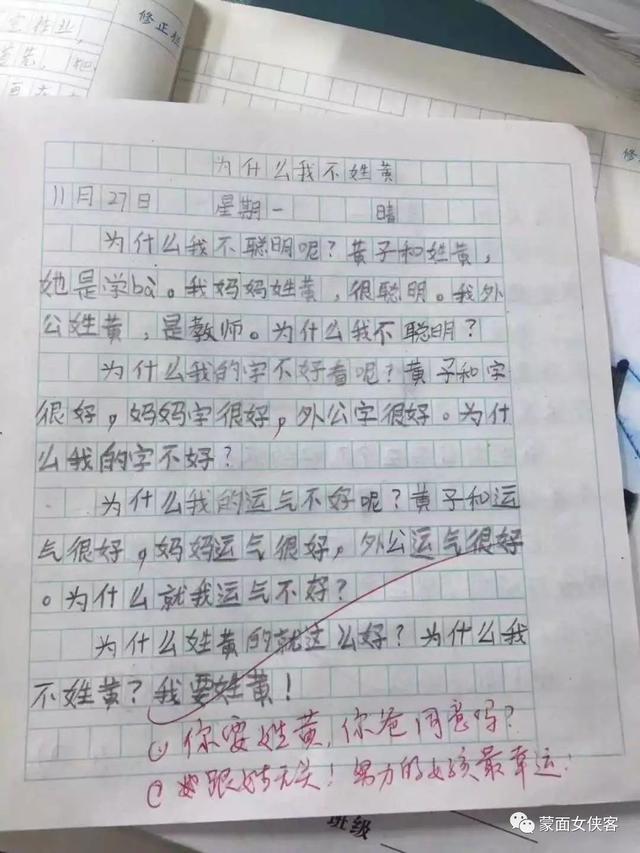 修正栏
为什么我不姓黄
11月27日 星期一 晴
为什么我不聪明呢？黄子和姓黄，
她是学bà。我妈妈姓黄，很聪明。我外
公姓黄，是教师。为什么我不聪明？
为什么我的字不好看呢？黄子和字
很好，妈妈字很好，外公字很好。为什
么我的字不好？
为什么我的运气不好呢？黄子和运
气很好，妈妈运气很好，外公运气很好
。为什么就我运气不好？
为什么姓黄的就这么好？为什么我
不姓黄？我要姓黄！
① 你要姓黄，你爸同意吗？
② 跟姓无关！努力的女孩最幸运！
班级
蒙面女侠客